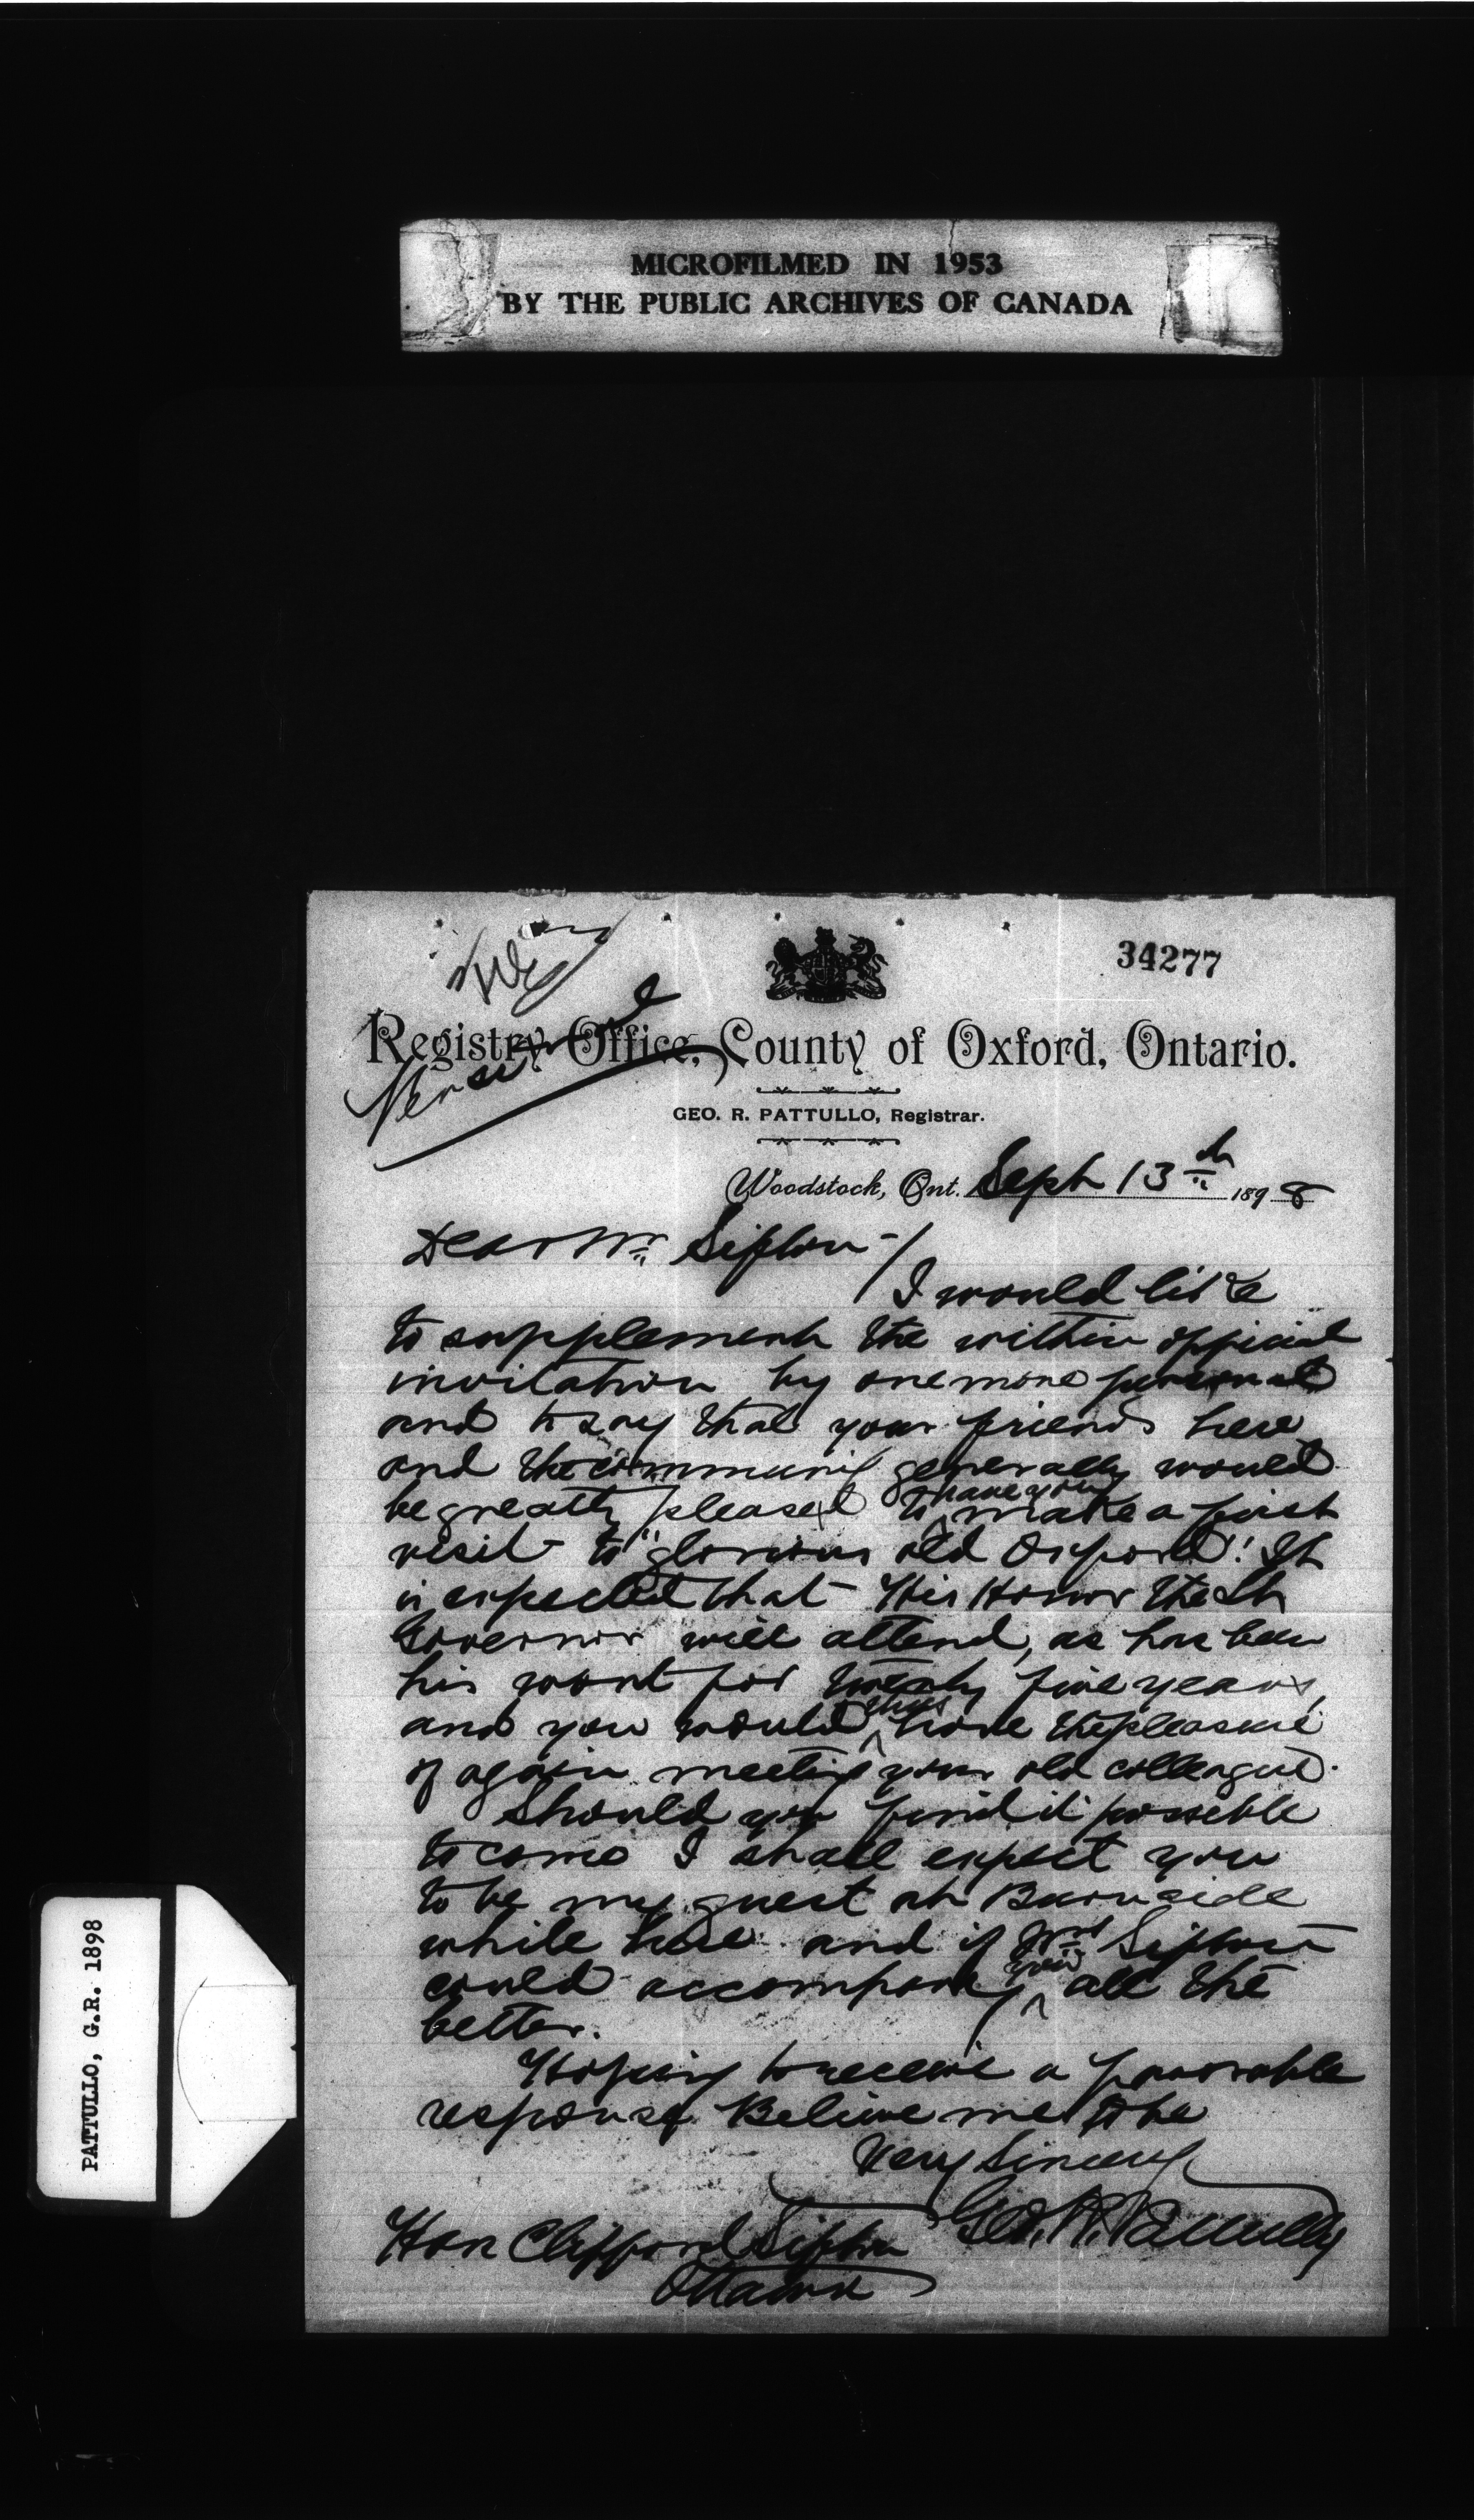 MICROFILMED IN 1953
BY THE PUBLIC ARCHIVES OF CANADA
34277
Personal
Registry Office, County of Oxford, Ontario.
GEO. R. PATTULLO, Registrar.
Woodstock, Ont. Sept 13th 1898
Dear Mr. Sifton -/
I would like
to supplement the within official
invitation by one more personal
and to say that your friends here
and the community generally would
be greatly pleased to have you make a first
visit to "glorious old Oxford"! It
is expected that His Honor the Lt
Governor will attend, as has been
his wont for twenty five years,
and you would thus have the pleasure
of again meeting your old colleague.
Should you find it possible
to come I shall expect you
to be my guest at Burnside
while here and if Mrs Sifton
could accompany you all the
better.
Hoping to receive a favorable
response Believe me to be
Very Sincerely
Geo. R. Pattullo
Hon Clifford Sifton
Ottawa
PATTULLO, G.R. 1898